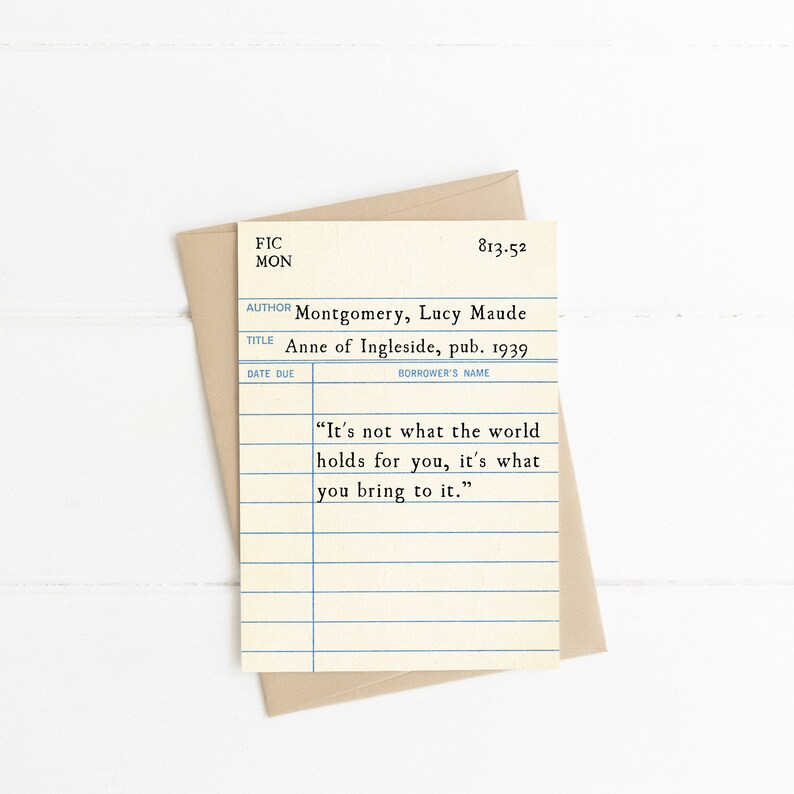 FIC 813.52
MON
AUTHOR Montgomery, Lucy Maude
TITLE Anne of Ingleside, pub. 1939
DATE DUE BORROWER'S NAME
“It's not what the world
holds for you, it's what
you bring to it.”